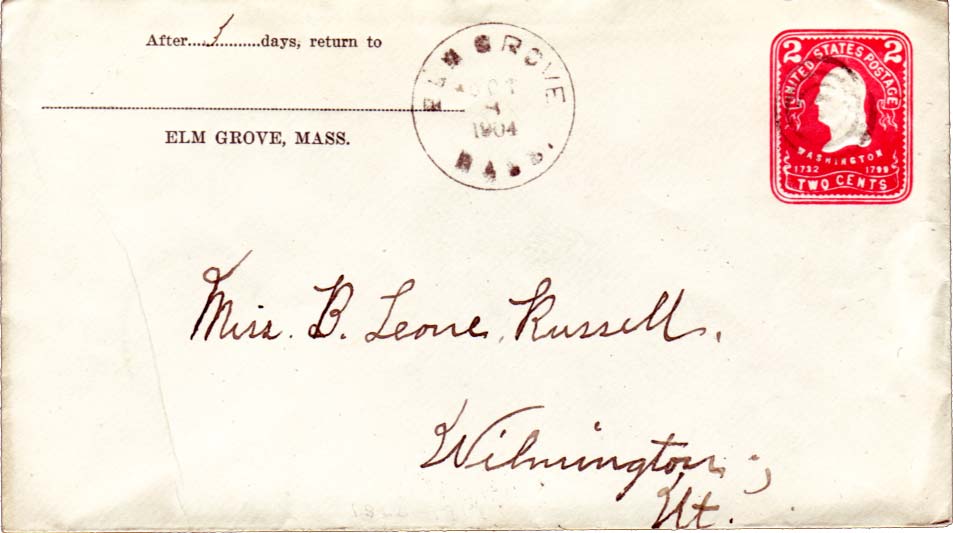 After....5..........days, return to
ELM GROVE, MASS.
ELM GROVE
OCT
1904
MASS.
2 2
UNITED STATES POSTAGE
WASHINGTON
1732 1799
TWO CENTS
Miss. B. Leone Russell.
Wilmington,
Vt.